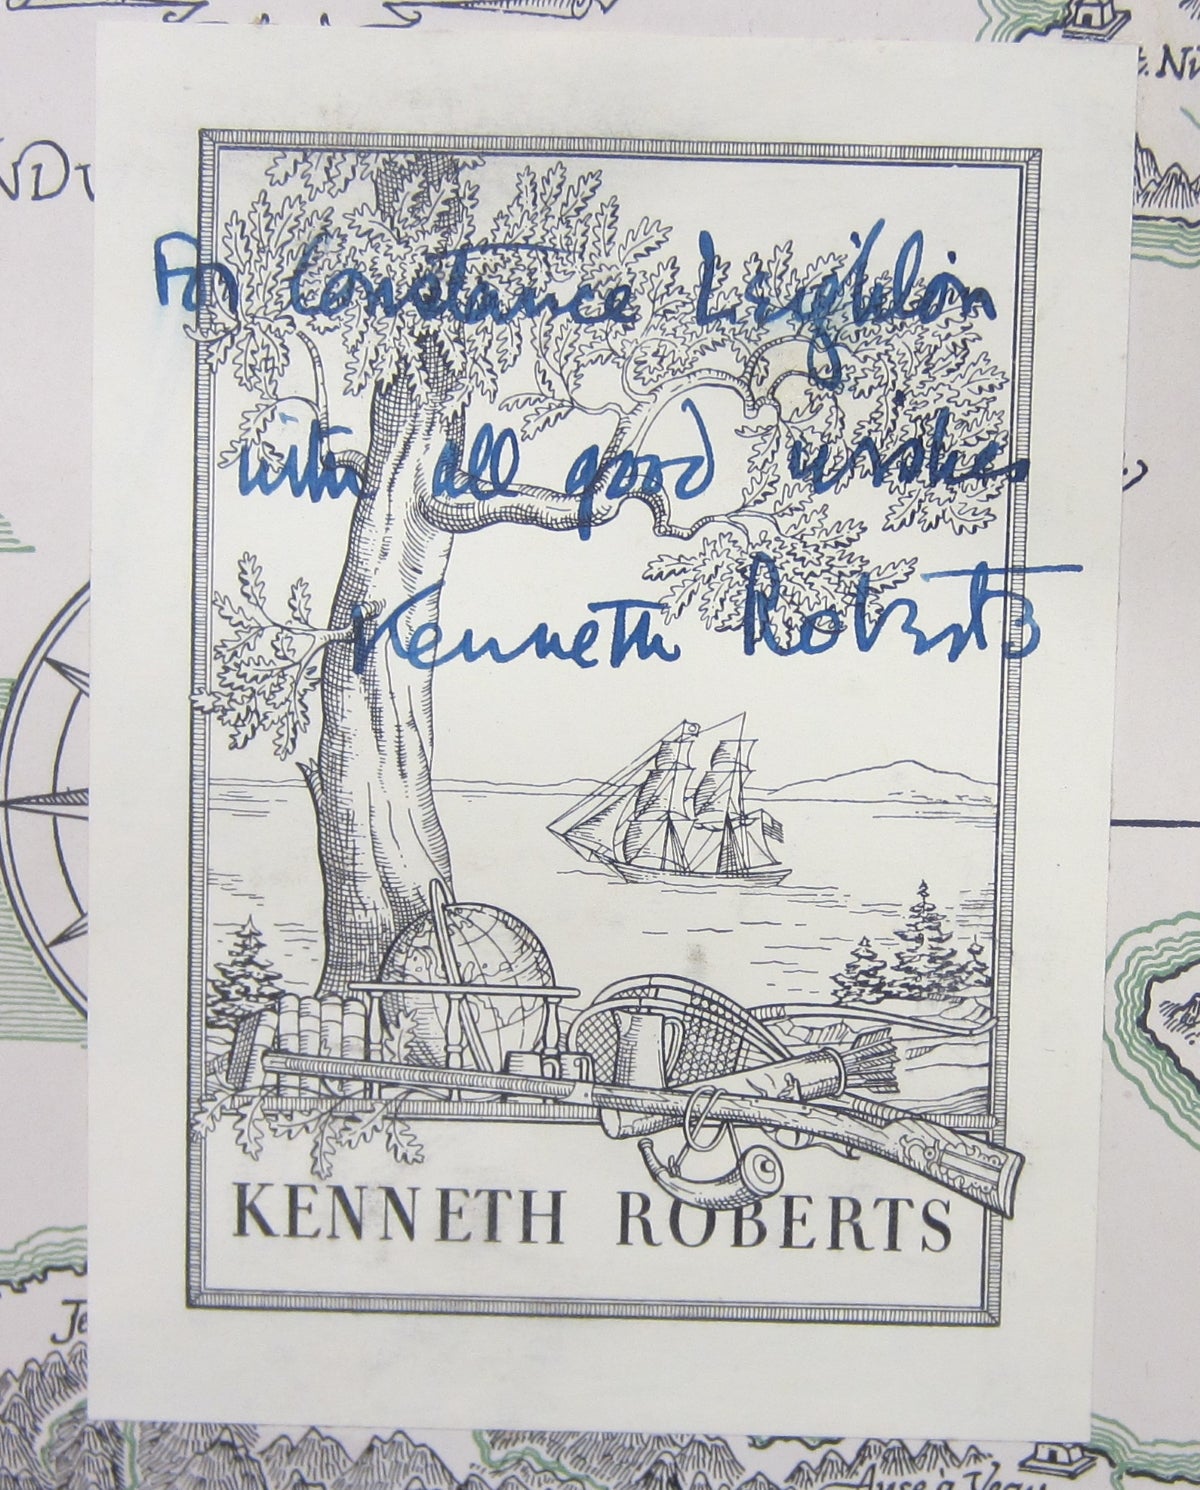 t. Ni
NDW
For Constance Leighton
with all good wishes
Kenneth Roberts
KENNETH ROBERTS
Je
Anse à Veau